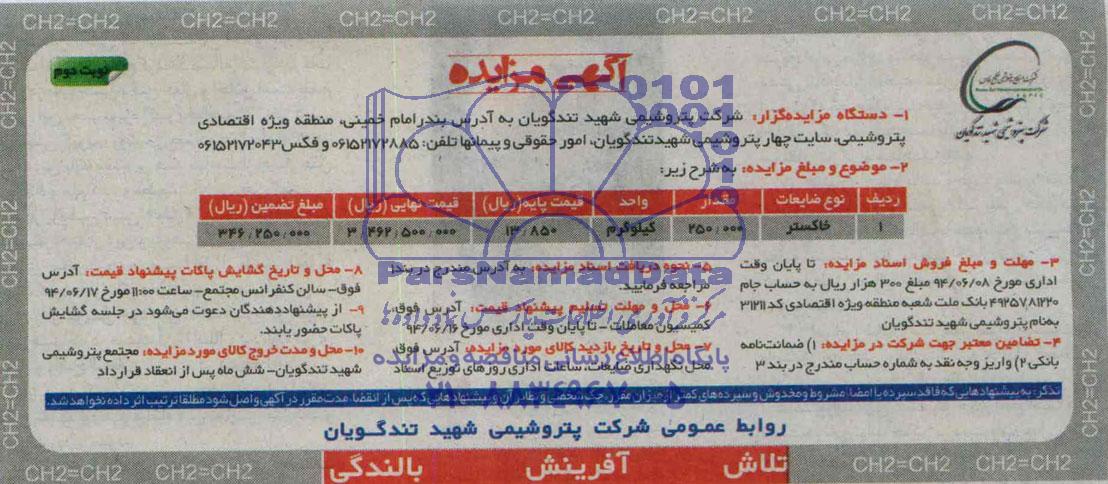 CH2=CH2 CH2=CH2 CH2=CH2 CH2=CH2 CH2=CH2 CH2=CH2 CH2=CH2
نوبت دوم
آگهی مزایده
شرکت پتروشیمی شهید تندگویان
۱- دستگاه مزایده‌گزار: شرکت پتروشیمی شهید تندگویان به آدرس بندرامام خمینی، منطقه ویژه اقتصادی
پتروشیمی، سایت چهار پتروشیمی شهیدتندگویان، امور حقوقی و پیمانها تلفن: ۰۶۱۵۲۱۷۲۸۸۵ و فکس ۰۶۱۵۲۱۷۲۰۴۳
۲- موضوع و مبلغ مزایده: به شرح زیر:
ردیف نوع ضایعات مقدار واحد قیمت پایه(ریال) قیمت نهایی (ریال) مبلغ تضمین (ریال)
۱ خاکستر ۲۵۰/۰۰۰ کیلوگرم ۱۳/۸۵۰ ۳/۴۶۲/۵۰۰/۰۰۰ ۳۴۶/۲۵۰/۰۰۰
۳- مهلت و مبلغ فروش اسناد مزایده: تا پایان وقت
اداری مورخ ۹۴/۰۶/۰۸ مبلغ ۳۰۰ هزار ریال به حساب جام
۴۹۲۵۷۸۱۲۲۰ بانک ملت شعبه منطقه ویژه اقتصادی کد ۳۱۲۱۱
به‌نام پتروشیمی شهید تندگویان
۴- تضامین معتبر جهت شرکت در مزایده: ۱) ضمانت‌نامه
بانکی ۲) واریز وجه نقد به شماره حساب مندرج در بند ۳
۵- نحوه دریافت اسناد مزایده: به آدرس مندرج در بند۱
مراجعه فرمایید.
۶- محل و مهلت تسلیم پیشنهاد قیمت: آدرس فوق،
کمیسیون معاملات - تا پایان وقت اداری مورخ ۹۴/۰۶/۱۶
۷- محل و تاریخ بازدید کالای مورد مزایده: آدرس فوق،
محل نگهداری ضایعات، ساعات اداری روزهای توزیع اسناد
۸- محل و تاریخ گشایش پاکات پیشنهاد قیمت: آدرس
فوق- سالن کنفرانس مجتمع- ساعت ۱۱:۰۰ مورخ ۹۴/۰۶/۱۷
۹- از پیشنهاددهندگان دعوت می‌شود در جلسه گشایش
پاکات حضور یابند.
۱۰- محل و مدت خروج کالای مورد مزایده: مجتمع پتروشیمی
شهید تندگویان- شش ماه پس از انعقاد قرارداد
تذکر: به پیشنهادهایی که فاقد سپرده یا امضا، مشروط و مخدوش و سپرده‌های کمتر از میزان مقرر، چک شخصی و نظایر آن و پیشنهادهایی که پس از انقضا مدت مقرر در آگهی واصل شود مطلقا ترتیب اثر داده نخواهد شد.
روابط عمومی شرکت پتروشیمی شهید تندگویان
تلاش آفرینش بالندگی
CH2=CH2 CH2=CH2 CH2=CH2 CH2=CH2
ParsNamadData
پایگاه اطلاع رسانی مناقصه و مزایده